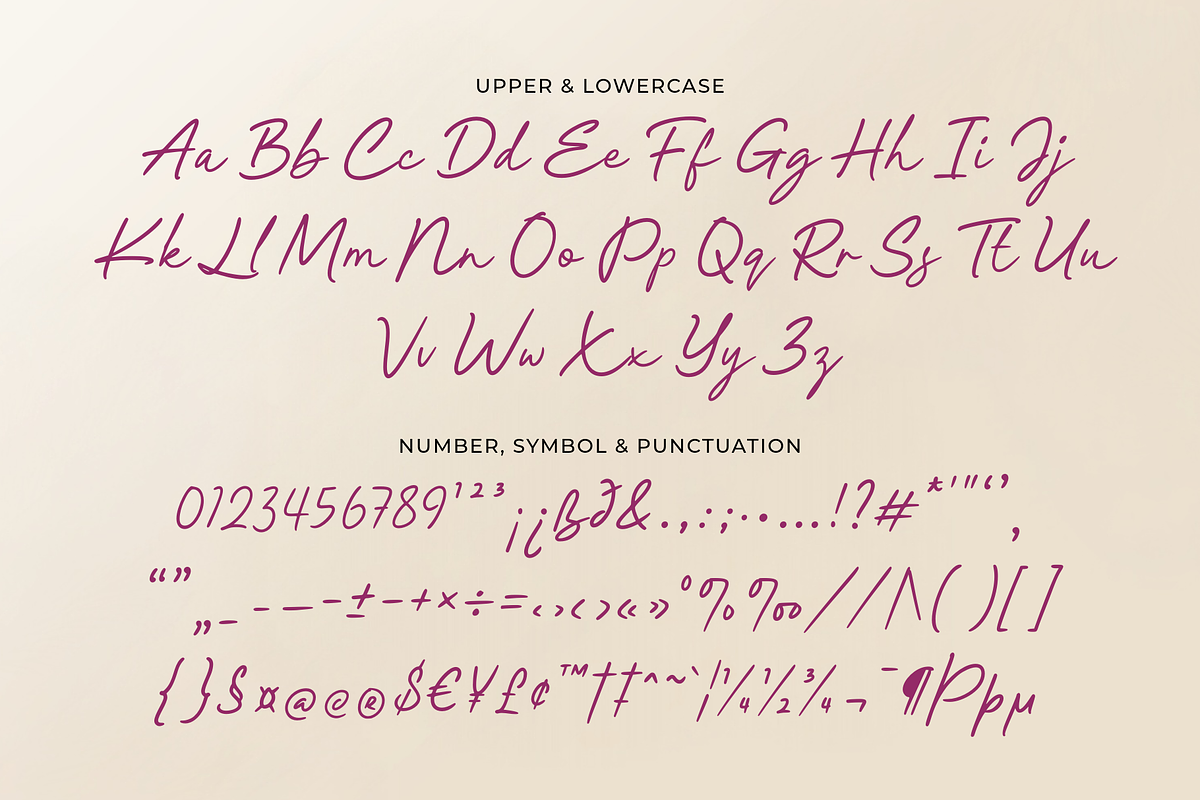 UPPER & LOWERCASE
Aa Bb Cc Dd Ee Ff Gg Hh Ii Jj
Kk Ll Mm Nn Oo Pp Qq Rr Ss Tt Uu
Vv Ww Xx Yy Zz
NUMBER, SYMBOL & PUNCTUATION
0123456789¹²³¡¿ßð&.,:;·•…!?#*'"‘’‚
“”„_-—–±−+×÷=‹›<>«»°%‰/⁄\/\()[]
{}§¤@©®$€¥£¢™†‡^~`¦¼½¾¬¯¶Þþµ